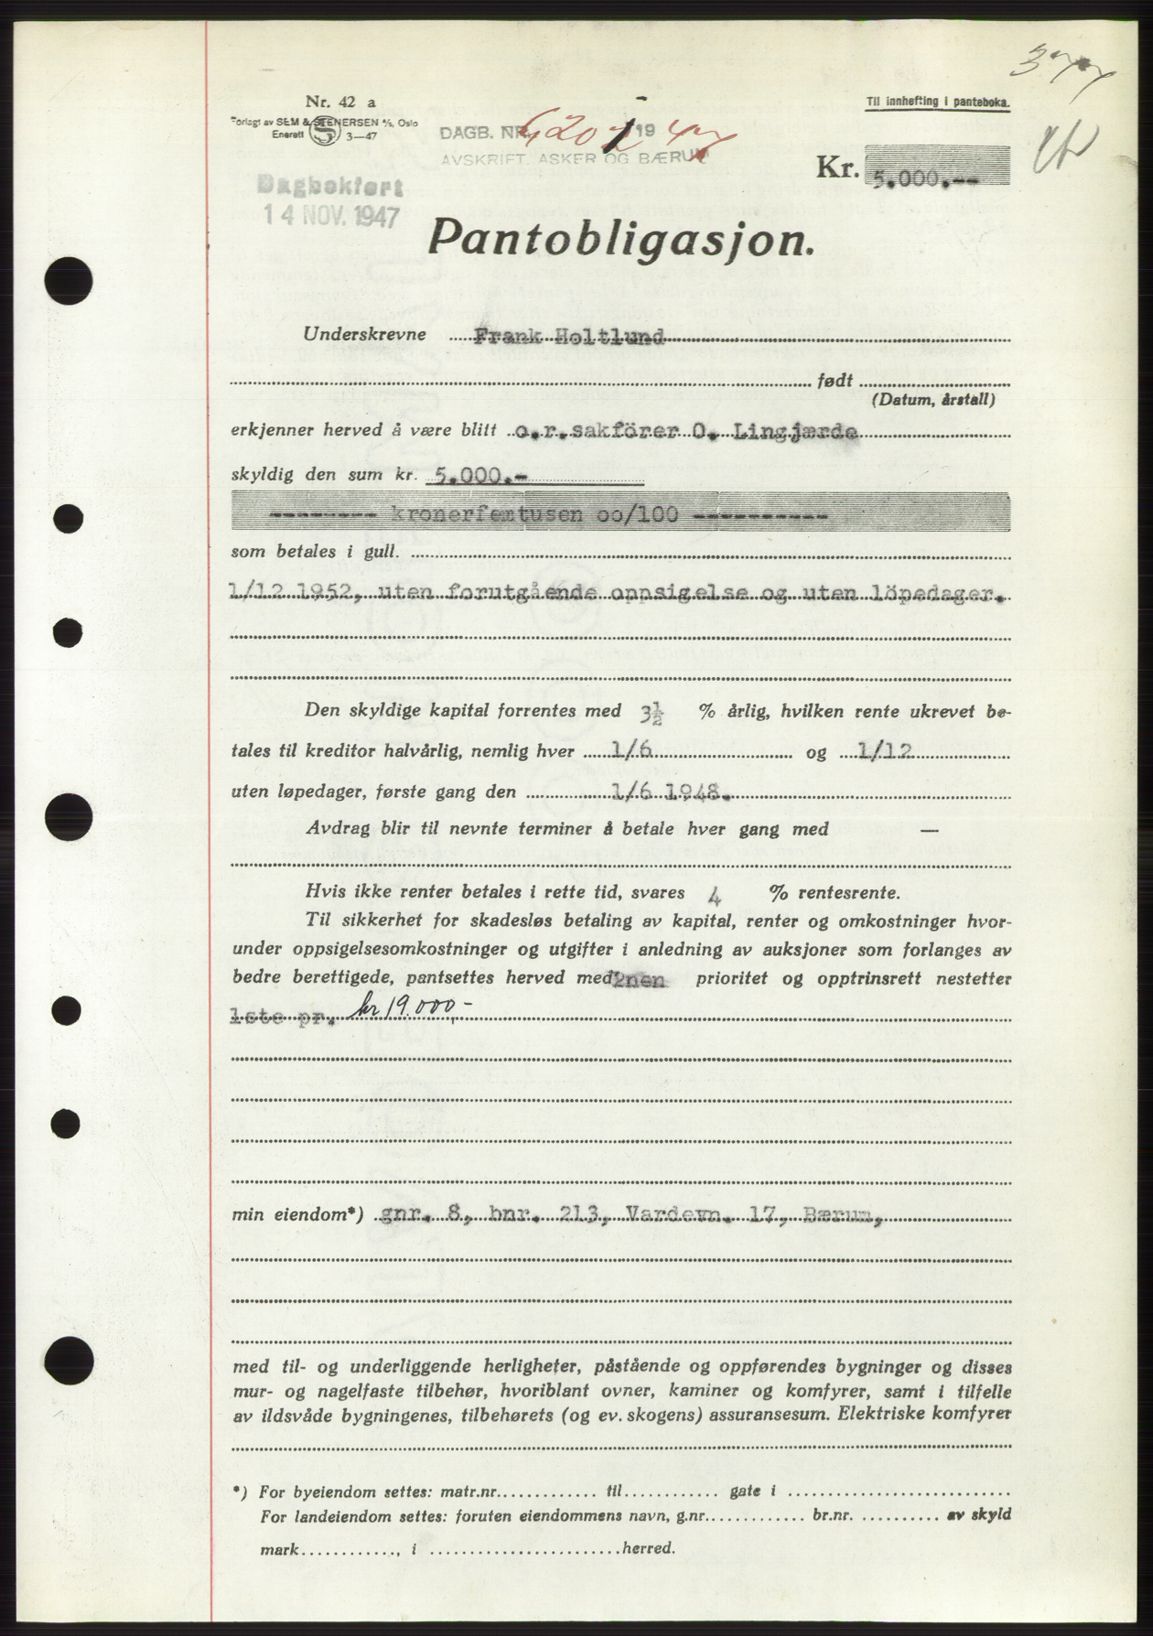 377
Nr. 42 a
Forlagt av SEM & STENERSEN A/S, Oslo
Enerett S 3—47
Til innhefting i panteboka.
DAGB. NR. 6201 1947
AVSKRIFT. ASKER OG BÆRUM
Kr. 5.000.--
Dagbokført
14 NOV. 1947
Pantobligasjon.
Underskrevne Frank Holtlund
født
(Datum, årstall)
erkjenner herved å være blitt o.r.sakförer O. Lingjærde
skyldig den sum kr. 5.000.-
-------- kronerfemtusen oo/100 ----------
som betales i gull.
1/12 1952, uten forutgående oppsigelse og uten löpedager.
Den skyldige kapital forrentes med 3½ % årlig, hvilken rente ukrevet be-
tales til kreditor halvårlig, nemlig hver 1/6 og 1/12
uten løpedager, første gang den 1/6 1948.
Avdrag blir til nevnte terminer å betale hver gang med —
Hvis ikke renter betales i rette tid, svares 4 % rentesrente.
Til sikkerhet for skadesløs betaling av kapital, renter og omkostninger hvor-
under oppsigelsesomkostninger og utgifter i anledning av auksjoner som forlanges av
bedre berettigede, pantsettes herved med 2nen prioritet og opptrinsrett nestetter
1ste pr. kr 19.000,-
min eiendom*) gnr. 8, bnr. 213, Vardevn. 17, Bærum,
med til- og underliggende herligheter, påstående og oppførendes bygninger og disses
mur- og nagelfaste tilbehør, hvoriblant ovner, kaminer og komfyrer, samt i tilfelle
av ildsvåde bygningenes, tilbehørets (og ev. skogens) assuransesum. Elektriske komfyrer
*) For byeiendom settes: matr.nr. til gate i
For landeiendom settes: foruten eiendommens navn, g.nr. br.nr. av skyld
mark , i herred.